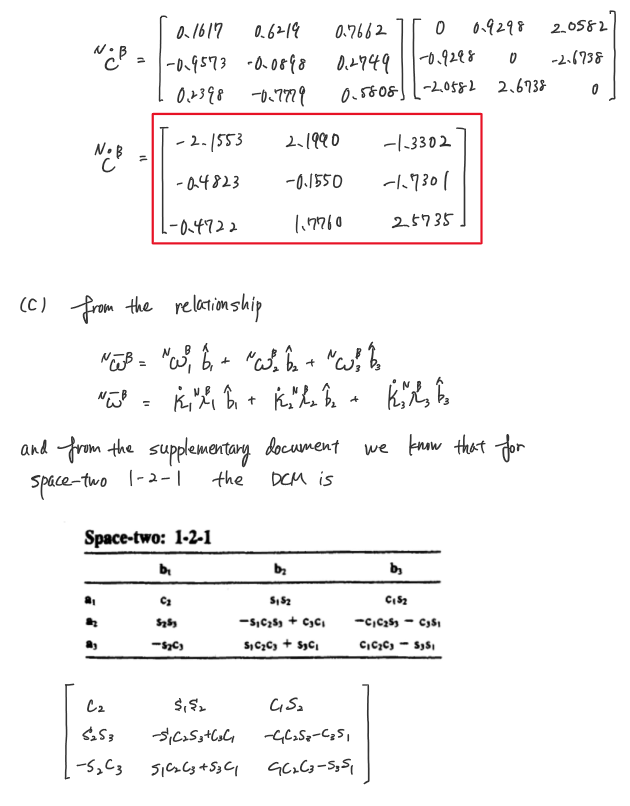 ᴺĊᴮ = [ 0.1617 0.6219 0.7662 ] [ 0 0.9298 2.0582 ]
[ -0.9573 -0.0898 0.2749 ] [ -0.9298 0 -2.6738 ]
[ 0.2398 -0.7779 0.5808 ] [ -2.0582 2.6738 0 ]
ᴺĊᴮ = [ -2.1553 2.1990 -1.3302 ]
[ -0.4823 -0.1550 -1.7301 ]
[ -0.4722 1.7760 2.5735 ]
(C) from the relationship
ᴺω̄ᴮ = ᴺω₁ᴮ b̂₁ + ᴺω₂ᴮ b̂₂ + ᴺω₃ᴮ b̂₃
ᴺω̄ᴮ = k̇₁ᴺλ₁ᴮ b̂₁ + k̇₂ᴺλ₂ᴮ b̂₂ + k̇₃ᴺλ₃ᴮ b̂₃
and from the supplementary document we know that for
space-two 1-2-1 the DCM is
Space-two: 1-2-1
b₁ b₂ b₃
a₁ c₂ s₁s₂ c₁s₂
a₂ s₂s₃ -s₁c₂s₃ + c₃c₁ -c₁c₂s₃ - c₃s₁
a₃ -s₂c₃ s₁c₂c₃ + s₃c₁ c₁c₂c₃ - s₃s₁
[ C₂ S₁S₂ C₁S₂ ]
[ S₂S₃ -S₁C₂S₃+C₃C₁ -C₁C₂S₃-C₃S₁ ]
[ -S₂C₃ S₁C₂C₃+S₃C₁ C₁C₂C₃-S₃S₁ ]